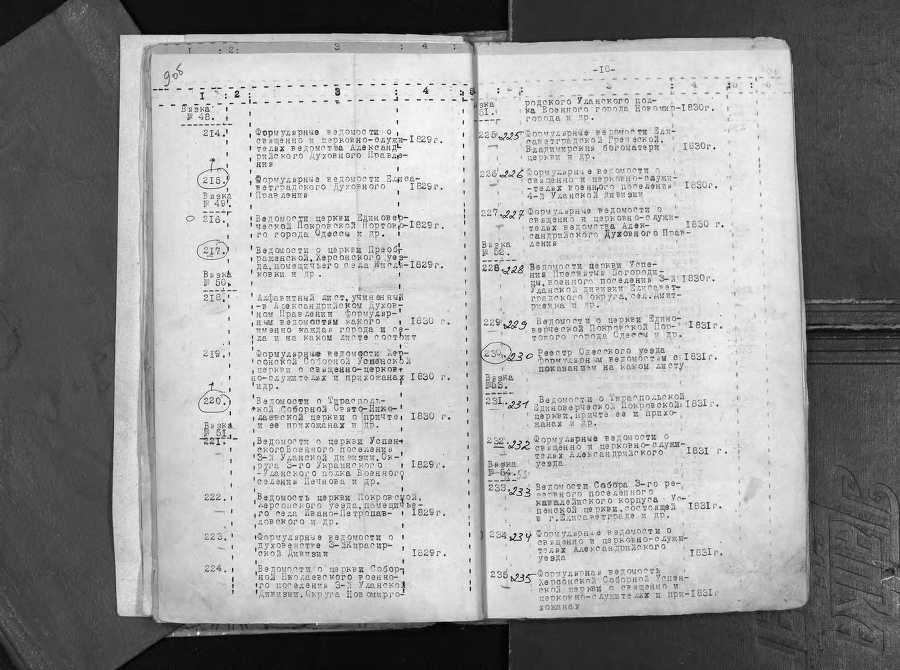 908
I : 2: 3 : 4 :
I : 2 : 3 : 4 : 5
Вязка
№ 48.
214. Формулярные ведомости о
священно и церковно-служи- 1829г.
телях ведомства Александ-
рийского Духовного Правле-
ния
215. Формулярные ведомости Елиса-
ветградского Духовного 1829г.
Правления
Вязка
№ 49.
216. Ведомости церкви Единовер-
ческой Покровской Портово- 1829г.
го города Одессы и др.
217. Ведомости о церкви Преоб-
раженской, Херсонского уез-
да, помещичьего села 1829г.
ковки и др.
Вязка
№ 50.
218. Алфавитный лист, учиненный
-в Александрийском Духов-
ном Правлении формуляр-
ным ведомостям какого 1830 г.
именно каждая города и се-
ла и на каком листе состоит
219. Формулярные ведомости Хер-
сонской Соборной Успенской
церкви о священно-церков-
но-служителях и прихожанах 1830 г.
и др.
220. Ведомости о Тирасполь-
ской Соборной Свято-Нико-
лаевской церкви о причте 1830 г.
и ее прихожанах и др.
Вязка
№ 51.
221. Ведомости о церкви Успен-
ского Военного поселения
3-й Уланской дивизии, Ок-
руга 3-го Украинского 1829г.
-Уланского полка Военного
селения Печнова и др.
222. Ведомость церкви Покровской,
Херсонского уезда, помещичье-
го села Ивано-Петропав- 1829г.
ловского и др.
223. Формулярные ведомости о
духовенстве 3-йКирасир-
ской Дивизии 1829г.
224. Ведомости о церкви Собор-
ной Николаевского военно-
го поселения 3-й Уланской
Дивизии, Округа Новомирго-
-10-
: 2: : 3 : 4 : 5
родского Уланского пол-
ка Военного города Новомир- 1830г.
города и др.
225. 225 Формулярные ведомости Ели-
саветградской Греческой,
Владимирския богоматери 1830г.
церкви и др.
226. 226 Формулярные ведомости о
священно и церковно-служи-
-телях военного поселения 1830г.
4-й Уланской дивизии
227. 227 Формулярные ведомости о
священно и церковно-служи-
телях ведомства Алек- 1830 г.
сандрийского Духовного Прав-
ления
Вязка
№ 52.
228. 228 Ведомости церкви Успе-
ния Пресвятыя Богороди-
цы, военного поселения 3-й 1830г.
Уланской дивизии Елисавет-
градского округа, сел. Дмит-
риевка и др.
229. 229 Ведомости о церкви Едино-
верческой Покровской Пор- 1831г.
тового города Одессы и др.
230. 230 Реестр Одесского уезда
формулярным ведомостям с 1831г.
показанием на каком листу
Вязка
№53.
231. 231 Ведомости о Тираспольской
Единоверческой Покровской 1831г.
церкви, причте ее и прихо-
жанах и др.
232. 232 Формулярные ведомости о
священно и церковно-служи-
телях Александрийского 1831 г.
уезда
Вязка
№ 54.
233. 233 Ведомости Собора 3-го ре-
зервного поселенного
кавалеййского корпуса Ус-
пенской церкви, состоящей 1831г.
в г.Елисаветграде и др.
234. 234 Формулярные ведомости о
священно и церковно-служи-
телях Александрийского 1831г.
уезда
235. 235 Формулярная ведомость
Херсонской Соборной Успен-
ской церкви о священно и
церковно-служителях и при- 1831г
хожанах